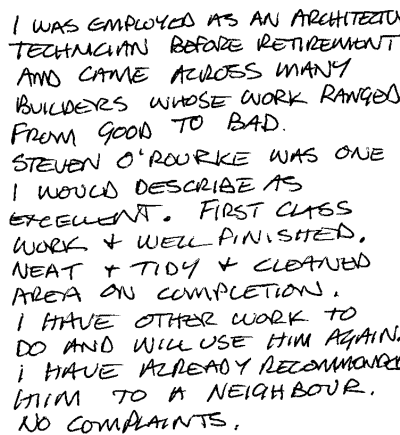 I WAS EMPLOYED AS AN ARCHITECTU
TECHNICIAN BEFORE RETIREMENT
AND CAME ACROSS MANY
BUILDERS WHOSE WORK RANGED
FROM GOOD TO BAD.
STEVEN O'ROURKE WAS ONE
I WOULD DESCRIBE AS
EXCELLENT. FIRST CLASS
WORK + WELL FINISHED.
NEAT + TIDY + CLEANED
AREA ON COMPLETION.
I HAVE OTHER WORK TO
DO AND WILL USE HIM AGAIN.
I HAVE ALREADY RECOMMENDED
HIM TO A NEIGHBOUR.
NO COMPLAINTS.